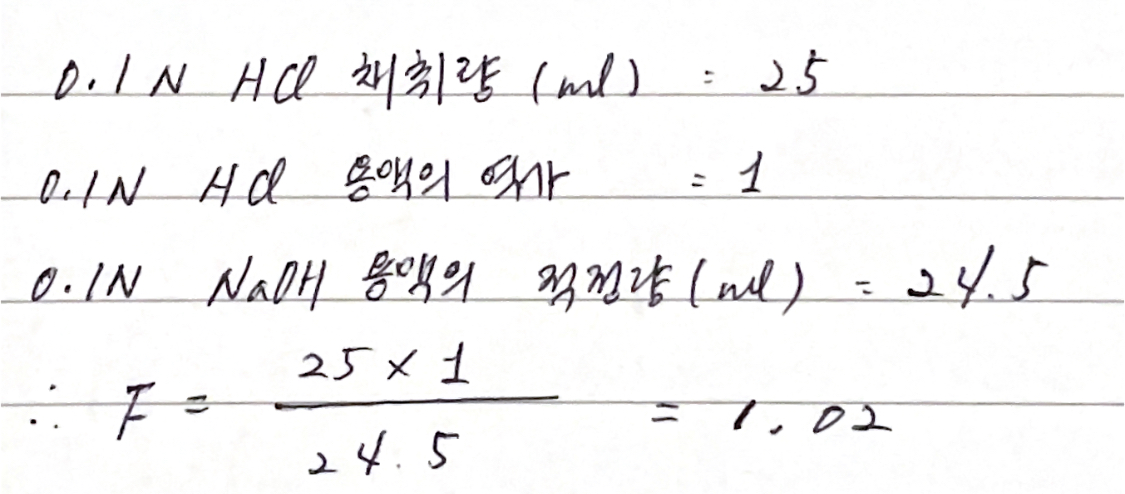 0.1N HCl 채취량 (ml) : 25
0.1N HCl 용액의 역가 = 1
0.1N NaOH 용액의 적정량 (ml) = 24.5
∴ F = 25 × 1 / 24.5 = 1.02